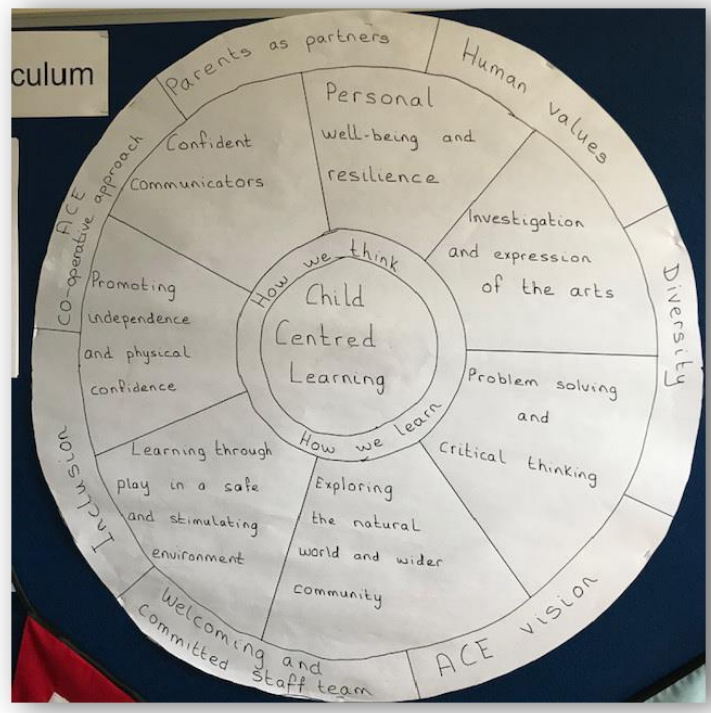 culum
Parents as partners
Human values
Diversity
ACE vision
Welcoming and
committed staff team
Inclusion
ACE
Co-operative approach
Confident
communicators
Personal
well-being and
resilience
Investigation
and expression
of the arts
Problem solving
and
critical thinking
Exploring
the natural
world and wider
community
Learning through
play in a safe
and stimulating
environment
Promoting
independence
and physical
confidence
How we think
Child
Centred
Learning
How we learn